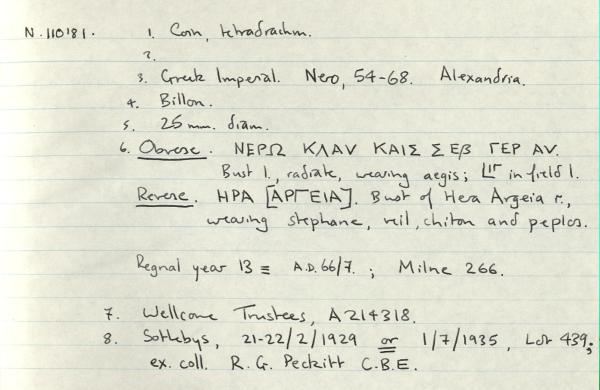 N.110'81. 1. Coin, tetradrachm.
2.
3. Greek Imperial. Nero, 54-68. Alexandria.
4. Billon.
5. 25 mm. diam.
6. Obverse. ΝΕΡΩ ΚΛΑV ΚΑΙΣ ΣΕβ ΓΕΡ ΑV.
Bust l., radiate, wearing aegis; LΙΓ in field l.
Reverse. ΗΡΑ [ΑΡΓΕΙΑ]. Bust of Hera Argeia r.,
wearing stephane, veil, chiton and peplos.
Regnal year 13 ≡ A.D. 66/7. ; Milne 266.
7. Wellcome Trustees, A214318.
8. Sothebys, 21-22/2/1929 or 1/7/1935, Lot 439;
ex. coll. R. G. Peckitt C.B.E.